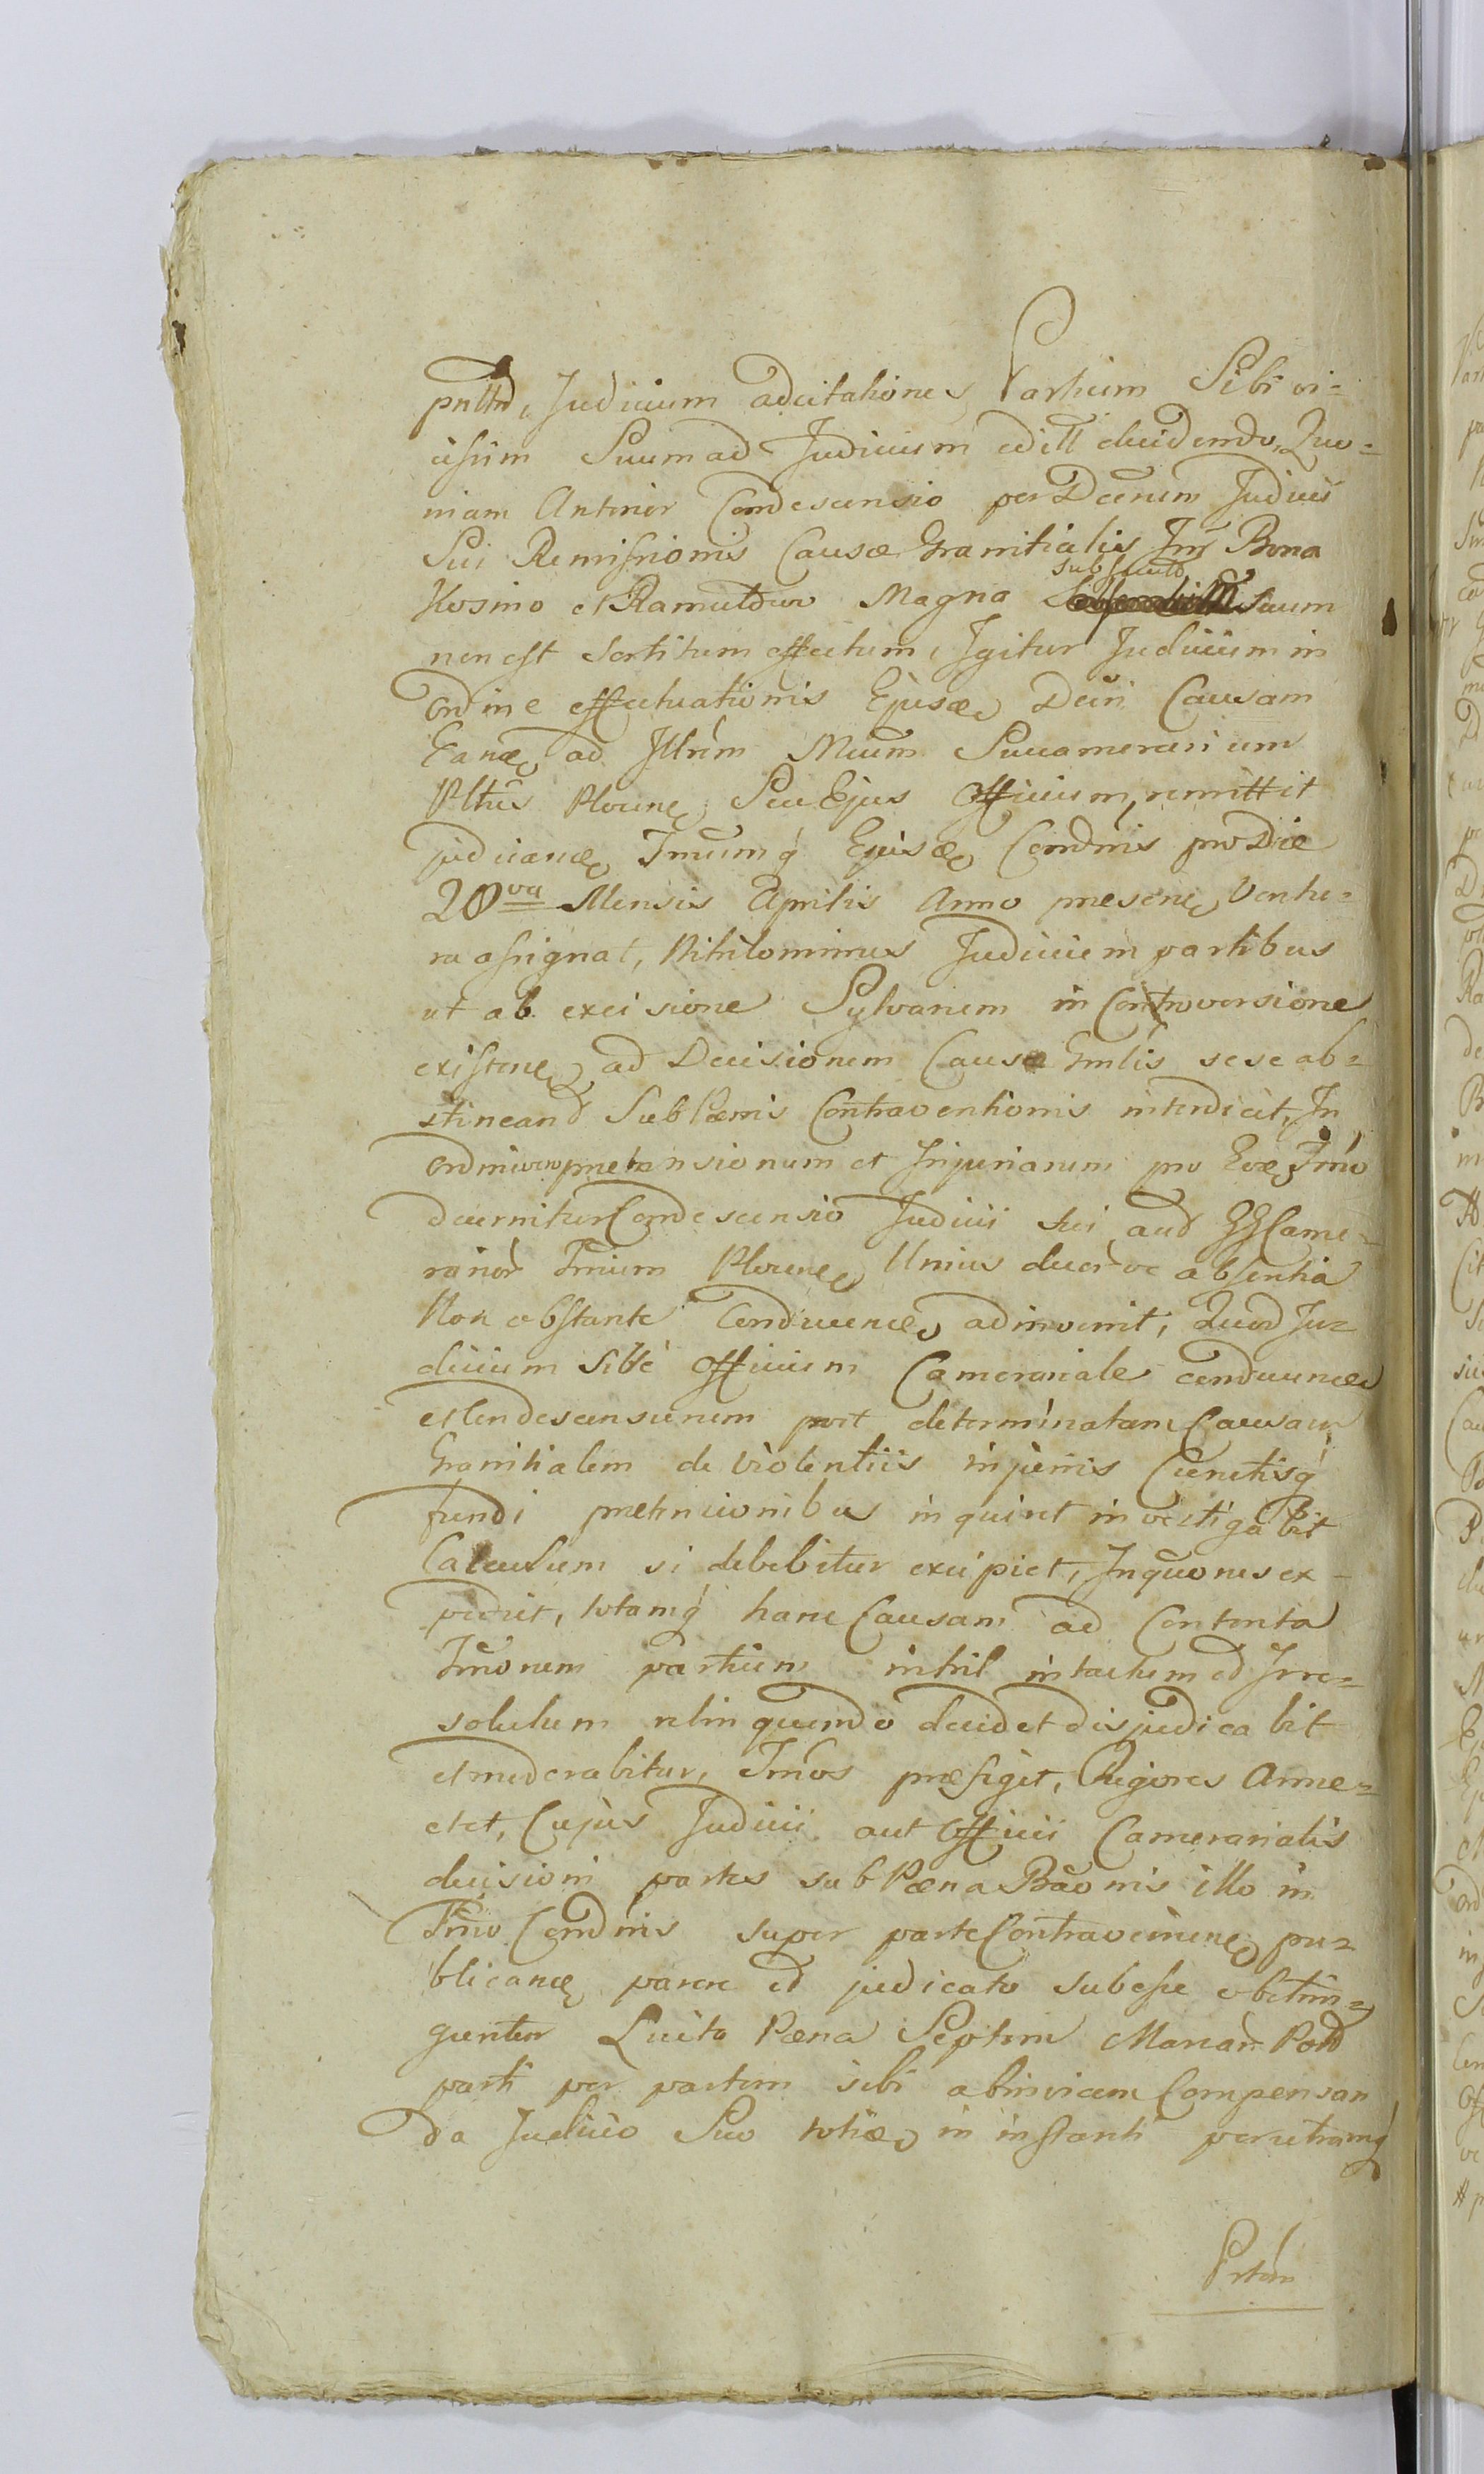 pnttm, Judicium adcitationes Partium Sibi vi-
cissim Suum ad Judicium editt decidendo, Quo-
niam Anterior Condescensio per Dcrum Judicii
Sui Remissionis Causæ Granitialis Intr Bona
Kosino et Ramultow Magna subsecuto suum
non est sortitum effectum, Igitur Judicium in
Ordine effectuationis Ejusd Dcti Causam
Eand ad Illrm Mcum Succamerarium
Pltus Plocen Seu Ejus Officium, remittit
judicand Tnumq Ejusd Condnis pro Die
20va Mensis Aprilis Anno præsen Ventu-
ra assignat, Nihilominus Judicium partibus
ut ab excisione Sylvarum in Controversione
existen ad Decisionem Causæ Gnlis sese ab-
stineand Sub Pænis Contraventionis interdicit, In
Ordine vero prætensionum et Injuriarum pro Eod Tmo
decernitur Condescensio Judicii sui aud GG Came-
rarior Trium Plocen Unius duor ve absentia
Non obstante Conducend adinvenit, Quod Ju-
dicium sive Officium Camerariale conducend
et Condescensurum post determinatam Causam
Granitialem de violentiis injuriis Cunctisq
fundi prætensionibus inquiret investigabit
Calculum si debebitur excipiet, Inquones ex-
pediet, totamq hanc Causam ad Contenta
Tmonem partium nihil intactum et Irre-
solutum relinquendo decidet disjudicabit
et moderabitur, Tmos præfiget, Rigores Anne-
ctet, Cujus Judicii aut Officii Camerarialis
decisioni partes sub Pæna Baonis illo in
Tmo Condnis super parte Contravenien pu-
blicand parere et judicato subesse obstrin-
guntur Luito Pæna Septem Marcar Pold
parti per partem sibi abinvicem Compensan
da Judicio Suo toties in instanti per utramq
Prtem